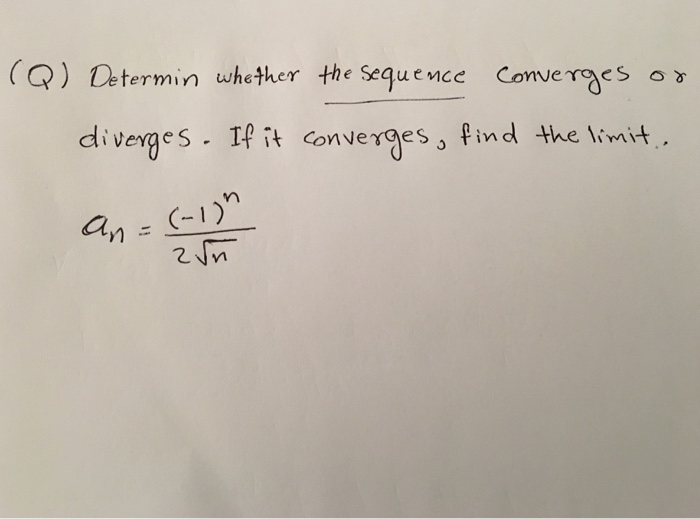 (Q) Determin whether the sequence converges or
diverges. If it converges, find the limit.
aₙ = (-1)ⁿ / 2√n